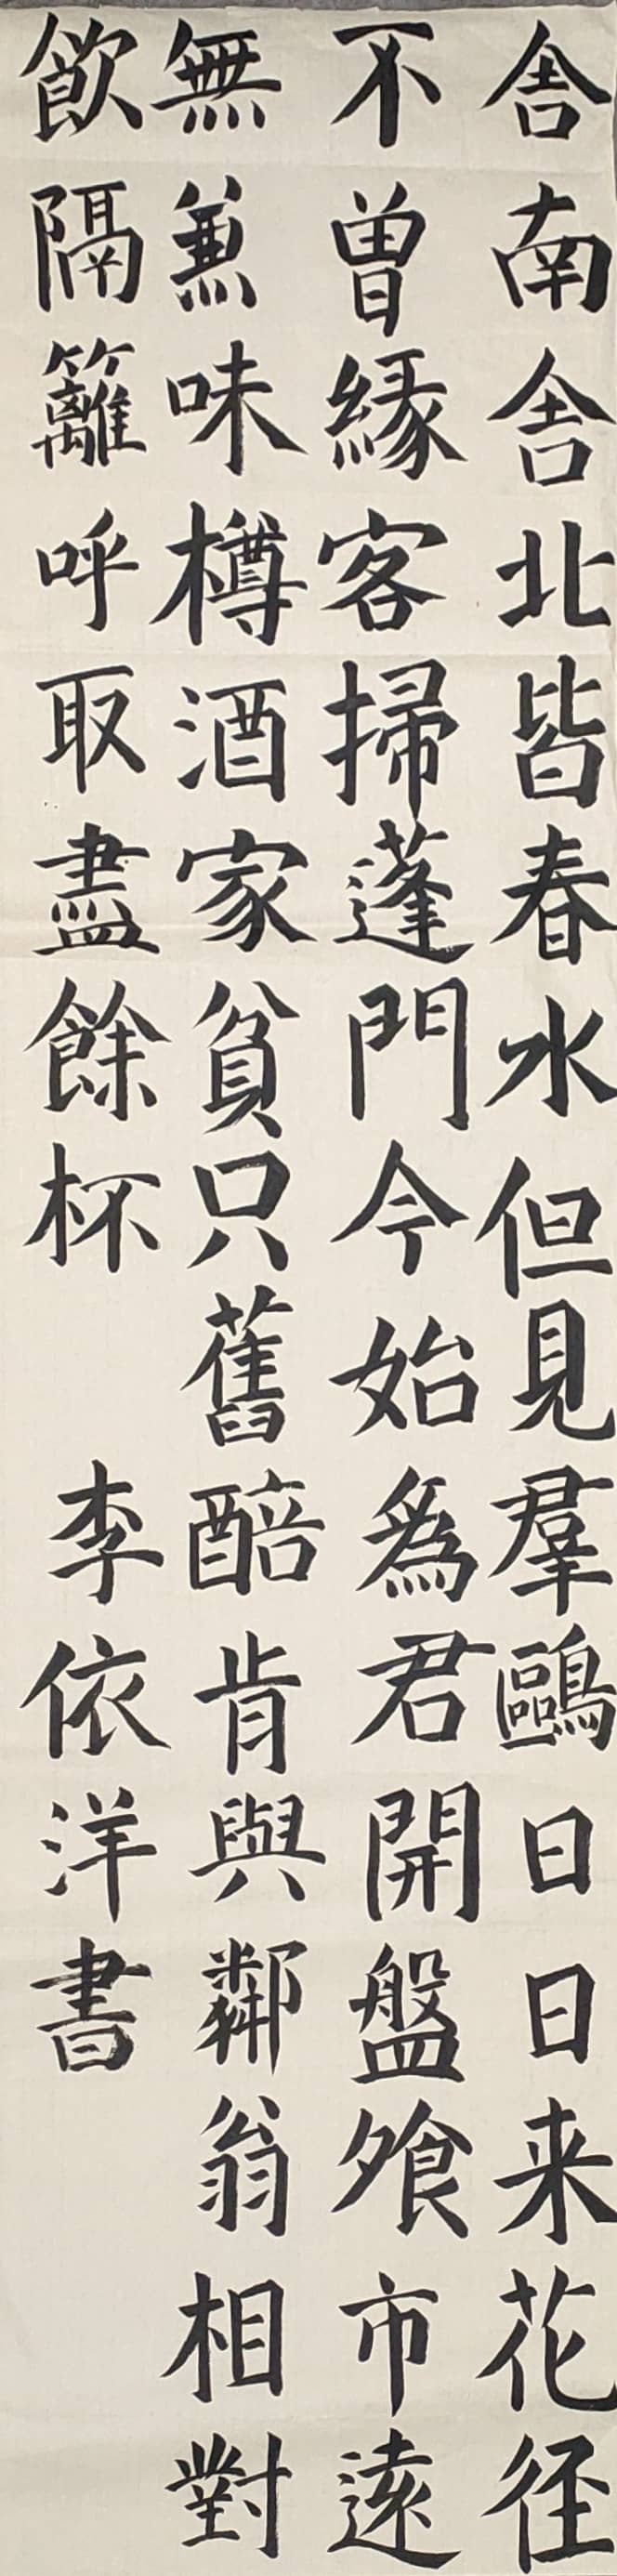 舎南舎北皆春水但見羣鷗日日来花徑
不曽縁客掃蓬門今始為君開盤飧市遠
無兼味樽酒家貧只舊醅肯與鄰翁相對
飲隔籬呼取盡餘杯　李依洋書